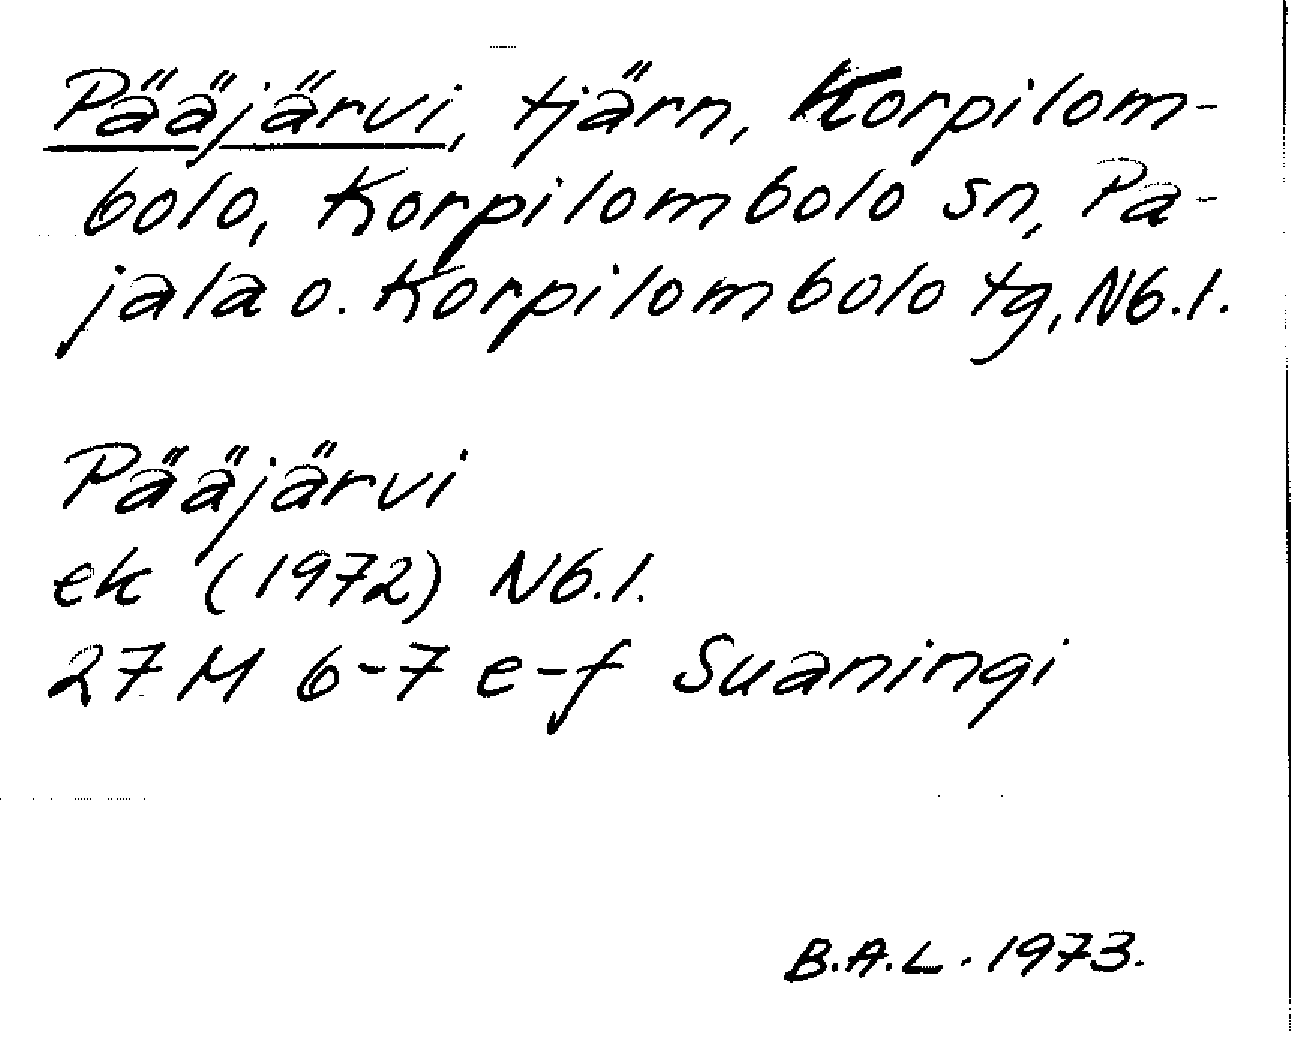 Pääjärvi, tjärn, Korpilom-
bolo, Korpilombolo sn, Pa-
jala o. Korpilombolo tg, Nb.l.
Pääjärvi
ek (1972) Nb.l.
27 M 6-7 e-f Suaningi
B.A.L. 1973.